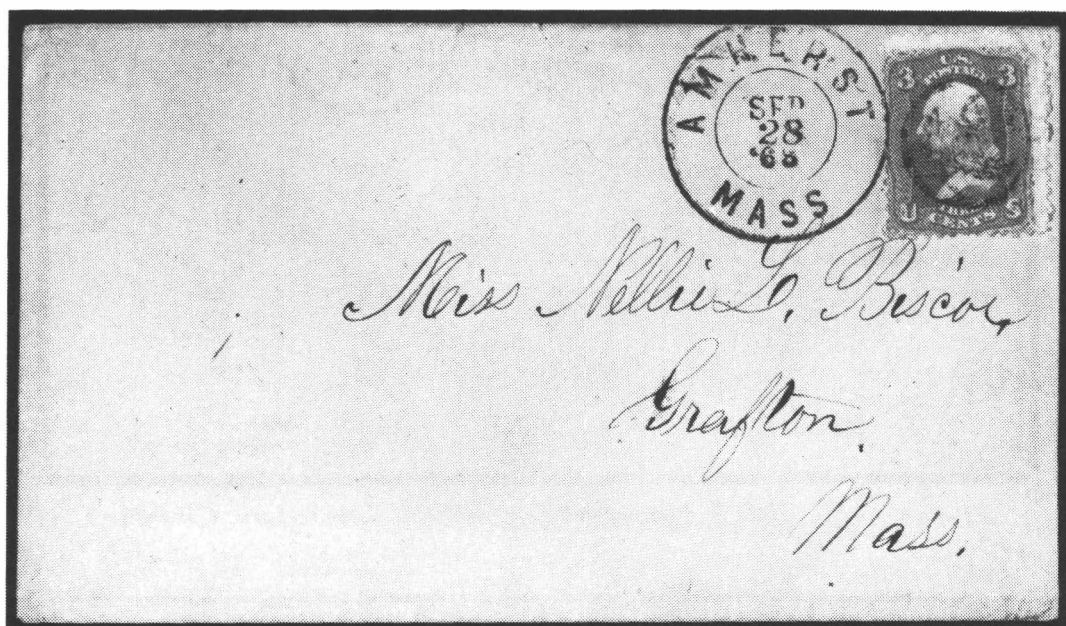 AMHERST
SEP
28
'68
MASS
3 U.S. 3
U CENTS S
Miss Nellie L. Biscoe,
Grafton.
Mass.